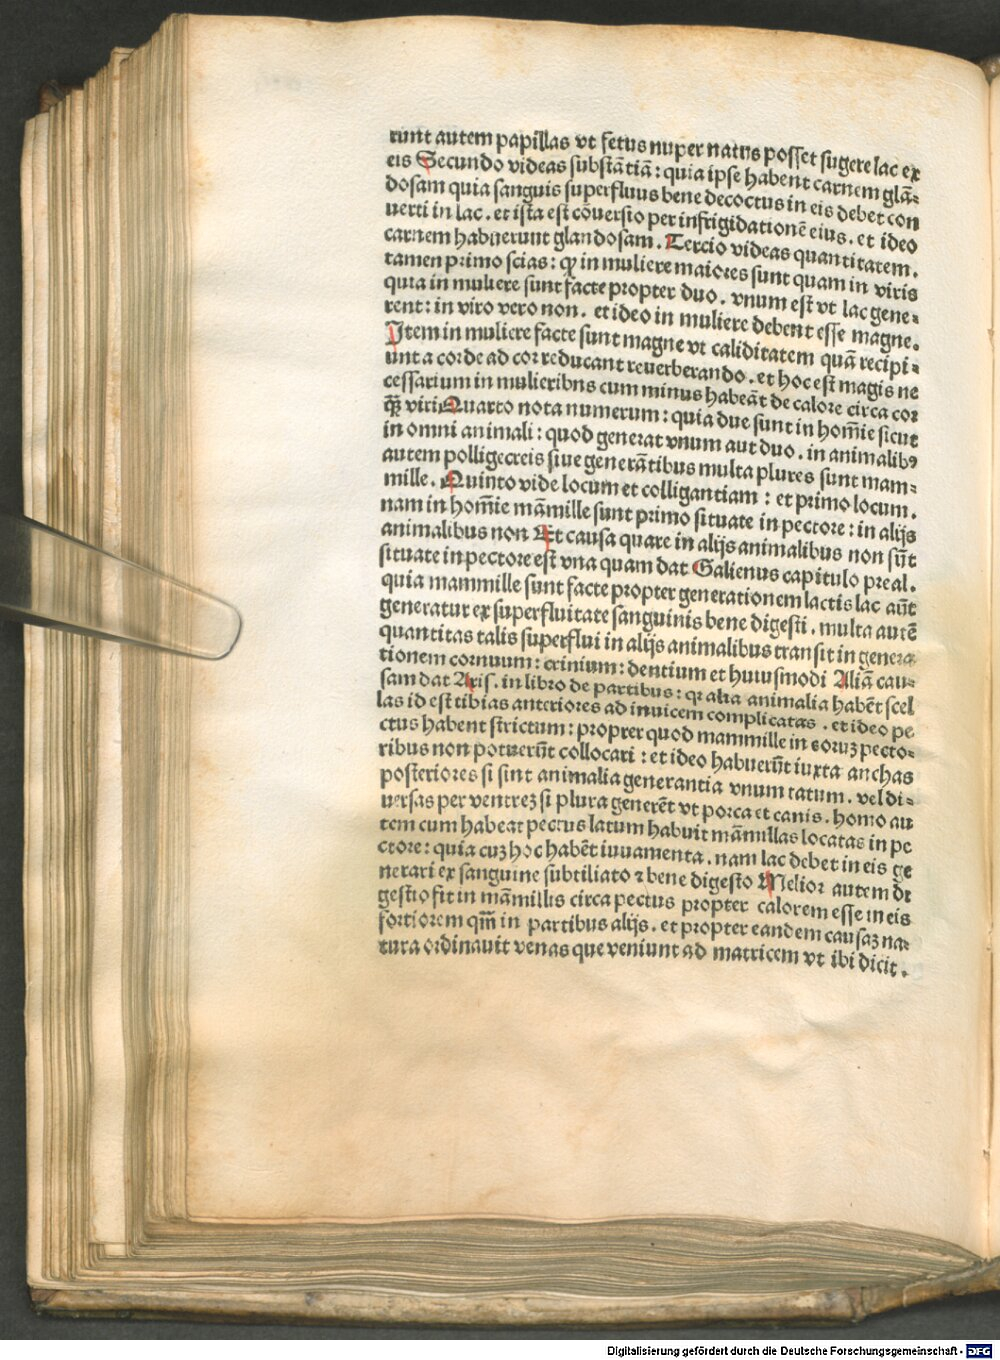 runt autem papillas vt fetus nuper natus posset sugere lac ex
eis Secundo videas substātiā : quia ipse habent carnem glā-
dosam quia sanguis superfluus bene decoctus in eis debet con
uerti in lac . et ista est cōuersio per infrigidationē eius . et ideo
carnem habuerunt glandosam . Tercio videas quantitatem .
tamen primo scias : qɔ in muliere maiores sunt quam in viris
quia in muliere sunt facte propter duo . vnum est vt lac gene-
rent : in viro vero non . et ideo in muliere debent esse magne .
Item in muliere facte sunt magne vt caliditatem quā recipi-
unt a corde ad cor reducant reuerberando . et hoc est magis ne
cessarium in mulieribus cum minus habeāt de calore circa cor
qȝ̄ viri Quarto nota numerum : quia due sunt in hom̄ie sicut
in omni animali : quod generat vnum aut duo . in animalibꝰ
autem polligecreis siue generātibus multa plures sunt mam-
mille . Quinto vide locum et colligantiam : et primo locum .
nam in hom̄ie mā̄mille sunt primo situate in pectore : in alijs
animalibus non Et causa quare in alijs animalibus non sūt
situate in pectore est vna quam dat Galienus capitulo preal .
quia mammille sunt facte propter generationem lactis lac aūt
generatur ex superfluitate sanguinis bene digesti . multa autē
quantitas talis superflui in alijs animalibus transit in genera
tionem cornuum : crinium : dentium et huiusmodi Aliā cau-
sam dat Aris . in libro de partibus : qꝛ alia animalia habēt scel
las id est tibias anteriores ad inuicem complicatas . et ideo pe
ctus habent strictum : propter quod mammille in eoruȝ pecto-
ribus non potuerūt collocari : et ideo habuerūt iuxta anchas
posteriores si sint animalia generantia vnum tatum . vel di-
uersas per ventreȝ si plura generēt vt porca et canis . homo au
tem cum habeat pectus latum habuit mā̄millas locatas in pe
ctore : quia cuȝ hoc habēt iuuamenta . nam lac debet in eis ge
nerari ex sanguine subtiliato ⁊ bene digesto Melior autem di
gestio fit in mā̄millis circa pectus propter calorem esse in eis
fortiorem qm̄ in partibus alijs . et propter eandem causaȝ na-
tura ordinauit venas que veniunt ad matricem vt ibi dicit .
Digitalisierung gefördert durch die Deutsche Forschungsgemeinschaft - DFG